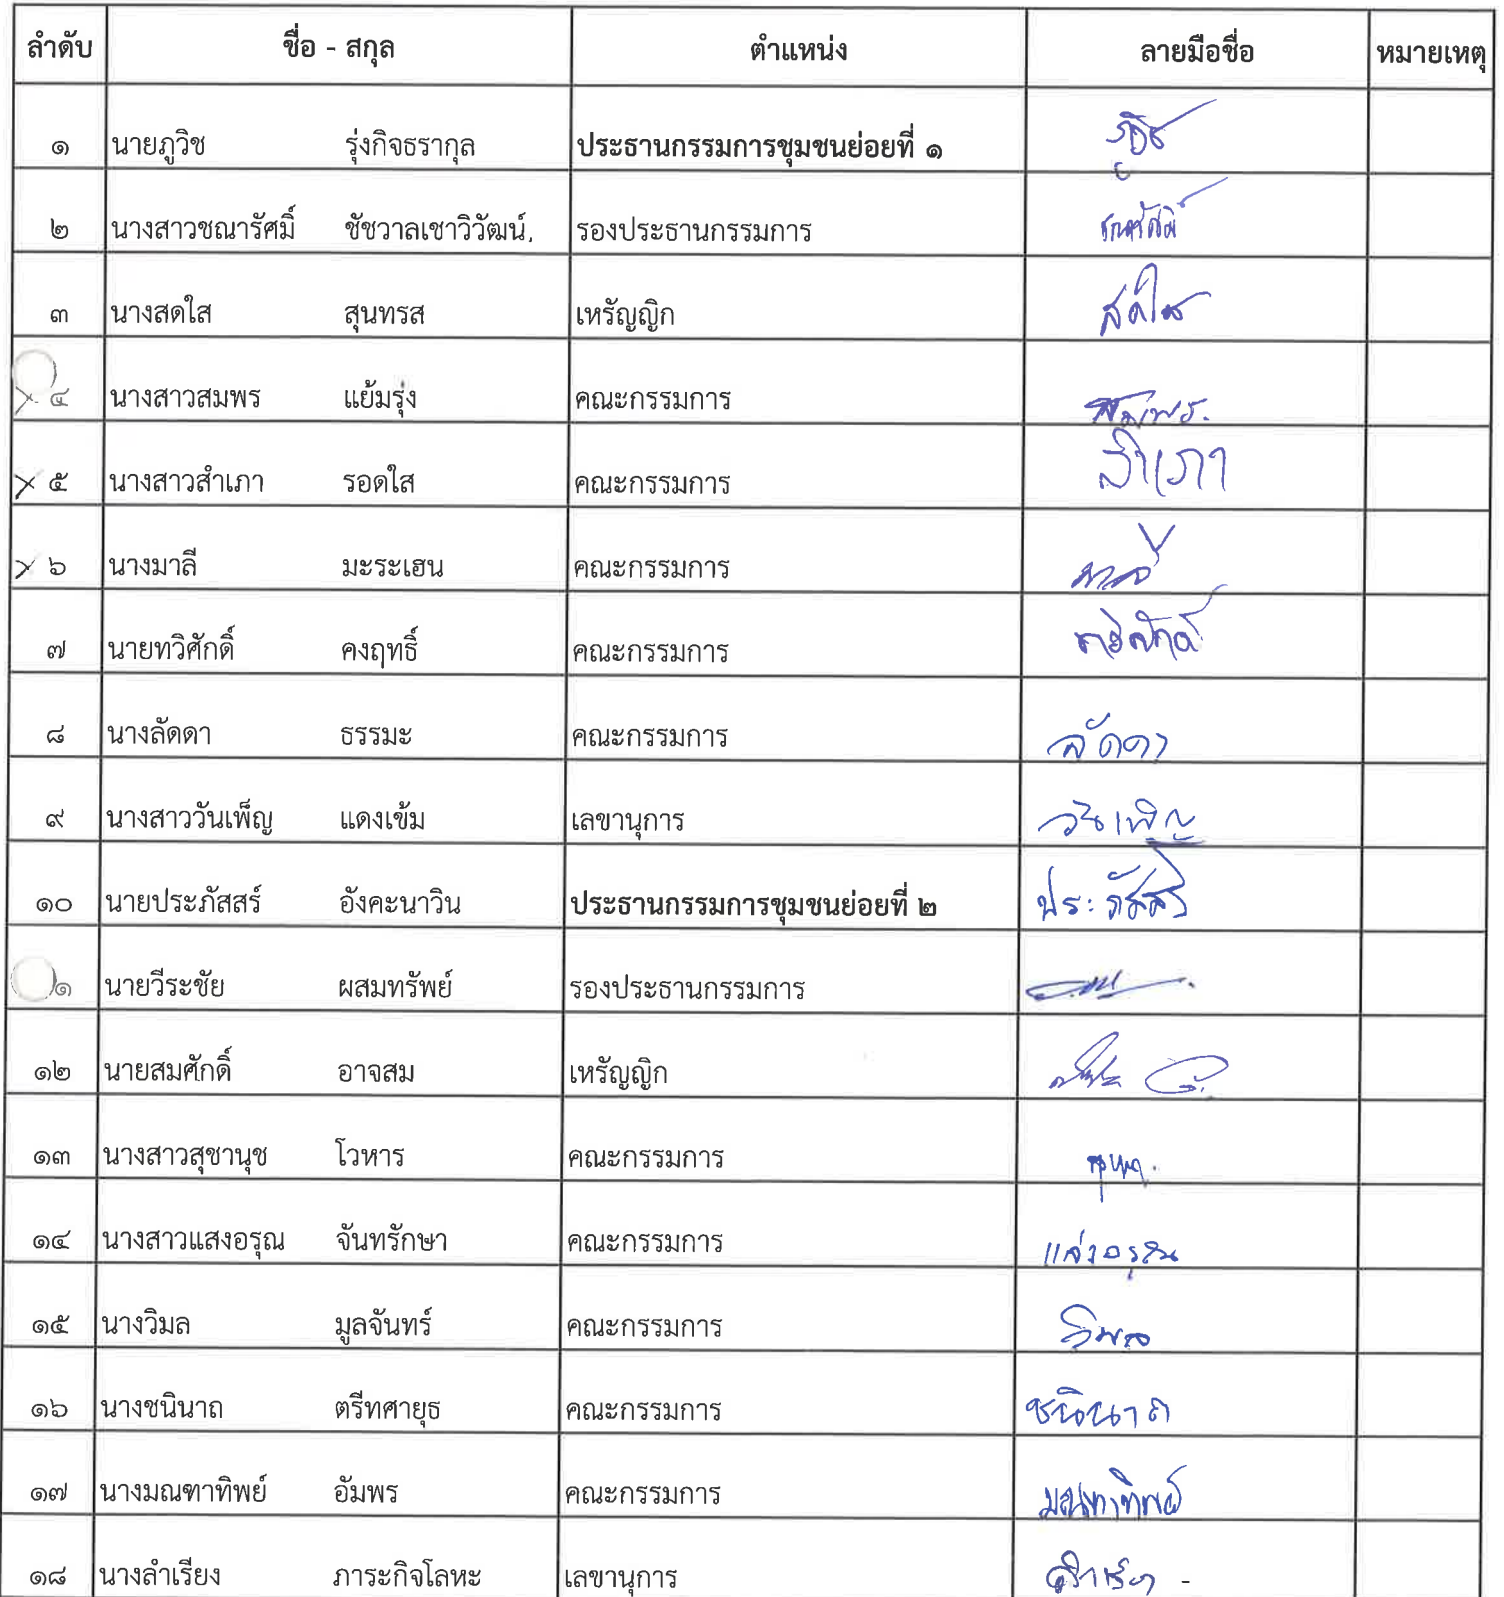 ลำดับ ชื่อ - สกุล ตำแหน่ง ลายมือชื่อ หมายเหตุ
๑ นายภูวิช รุ่งกิจธรากุล ประธานกรรมการชุมชนย่อยที่ ๑ ภูวิช
๒ นางสาวชณารัศมิ์ ชัชวาลเชาวิวัฒน์. รองประธานกรรมการ ชณารัศมิ์
๓ นางสดใส สุนทรส เหรัญญิก สดใส
๔ นางสาวสมพร แย้มรุ่ง คณะกรรมการ สมพร.
๕ นางสาวสำเภา รอดใส คณะกรรมการ สำเภา
๖ นางมาลี มะระเฮน คณะกรรมการ มาลี
๗ นายทวิศักดิ์ คงฤทธิ์ คณะกรรมการ ทวิศักดิ์
๘ นางลัดดา ธรรมะ คณะกรรมการ ลัดดา
๙ นางสาววันเพ็ญ แดงเข้ม เลขานุการ วันเพ็ญ
๑๐ นายประภัสสร์ อังคะนาวิน ประธานกรรมการชุมชนย่อยที่ ๒ ประภัสสร์
๑ นายวีระชัย ผสมทรัพย์ รองประธานกรรมการ
๑๒ นายสมศักดิ์ อาจสม เหรัญญิก
๑๓ นางสาวสุชานุช โวหาร คณะกรรมการ
๑๔ นางสาวแสงอรุณ จันทรักษา คณะกรรมการ แสงอรุณ
๑๕ นางวิมล มูลจันทร์ คณะกรรมการ วิมล
๑๖ นางชนินาถ ตรีทศายุธ คณะกรรมการ ชนินาถ
๑๗ นางมณฑาทิพย์ อัมพร คณะกรรมการ มณฑาทิพย์
๑๘ นางลำเรียง ภาระกิจโลหะ เลขานุการ